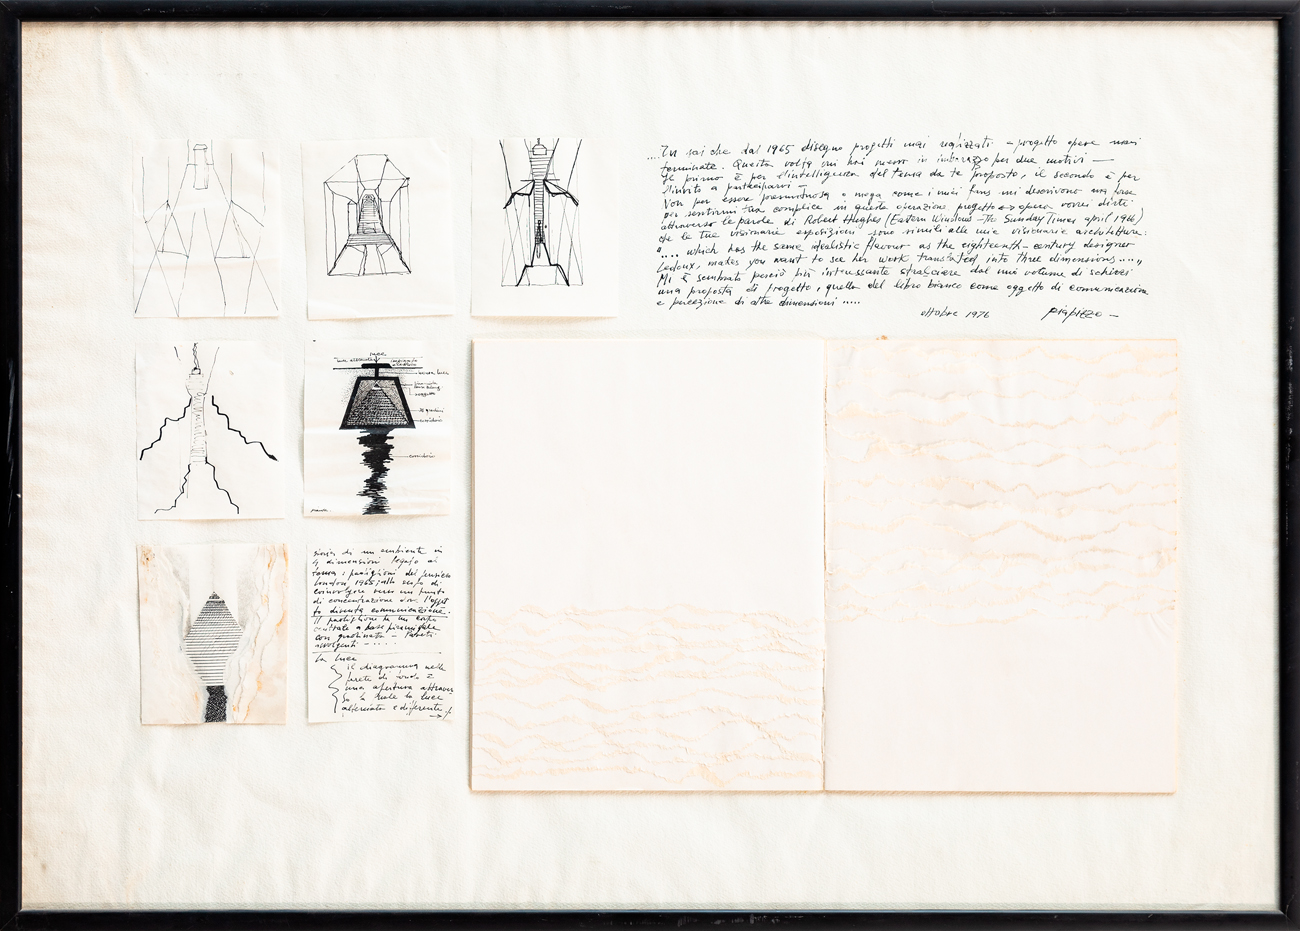 .... Tu sai che dal 1965 disegno progetti mai realizzati – progetto opere mai
terminate. Questa volta mi hai messo in imbarazzo per due motivi –
Il primo è per l'intelligenza del tema da te proposto, il secondo è per
l'invito a parteciparvi –
Non per essere presuntuosa o maga come i miei fans mi descrivono ma forse
per sentirmi tua complice in questa operazione progetto opera vorrei dirti
attraverso le parole di Robert Hughes (Eastern Windows – The Sunday Times april 1966)
che le tue visionarie esposizioni sono simili alle mie visionarie architetture:
".... which has the same idealistic flavour as the eighteenth-century designer
Ledoux, makes you want to see her work translated into three dimensions ....„
Mi è sembrato perciò più interessante stralciare dal mio volume di schizzi
una proposta di progetto, quella del libro bianco come oggetto di comunicazione
e percezione di altre dimensioni .....
ottobre 1976
luce
corridoio
storia di un ambiente in
4 dimensioni legato al
tema: padiglioni del pensiero
London 1965; allo scopo di
coinvolgere verso un punto
di concentrazione dove l'ogget
to diventa comunicazione.
Il padiglione ha un corpo
centrale a base piramidale
con gradinata – Pareti
avvolgenti – ....
La luce
il diagramma nella
parete di fondo è
una apertura attraver
so la quale la luce
alternata e differente